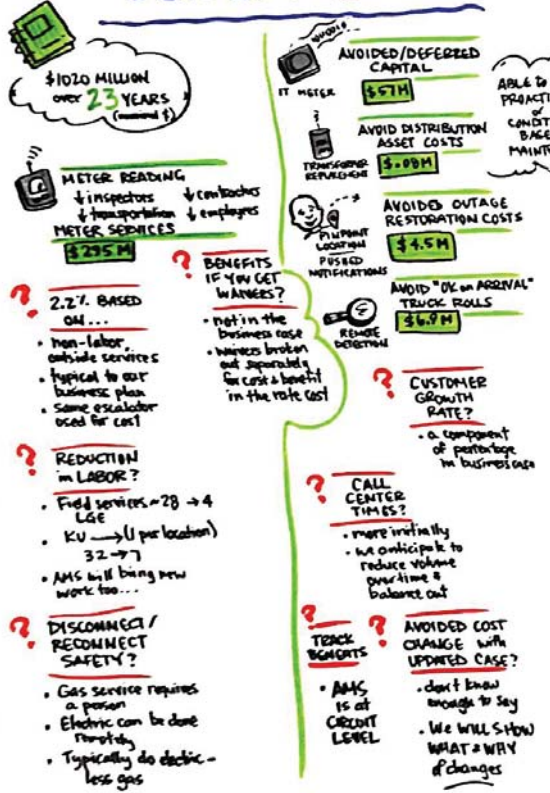 $1020 MILLION
over 23 YEARS
(nominal $)
METER READING
↓ inspectors ↓ contractors
↓ transportation ↓ employees
METER SERVICES
$295M
? 2.2% BASED
ON...
• non-labor,
outside services
• typical to our
business plan
• same escalator
used for cost
? REDUCTION
in LABOR?
• Field services ~28 → 4
LGE
• KU → (1 per location)
32 → 7
• AMS will bring new
work too...
? DISCONNECT/
RECONNECT
SAFETY?
• Gas service requires
a person
• Electric can be done
remotely
• Typically do electric -
less gas
? BENEFITS
IF YOU GET
WAIVERS?
• not in the
business case
• waivers broken
out separately
for cost & benefit
in the rate cost
IT METER
AVOIDED/DEFERRED
CAPITAL
$57M
TRANSFORMER
REPLACEMENT
AVOID DISTRIBUTION
ASSET COSTS
$.08M
PINPOINT
LOCATION
PUSHED
NOTIFICATIONS
AVOIDED OUTAGE
RESTORATION COSTS
$4.5M
REMOTE
DETECTION
AVOID "OK on ARRIVAL"
TRUCK ROLLS
$6.9M
ABLE to
PROACTI
or
CONDIT
BASE
MAINT
? CUSTOMER
GROWTH
RATE?
• a component
of percentage
in business case
? CALL
CENTER
TIMES?
• more initially
• we anticipate to
reduce volume
over time &
balance out
? TRACK
BENEFITS
• AMS
IS at
CIRCUIT
LEVEL
? AVOIDED COST
CHANGE with
UPDATED CASE?
• don't know
enough to say
• We WILL SHOW
WHAT & WHY
of changes